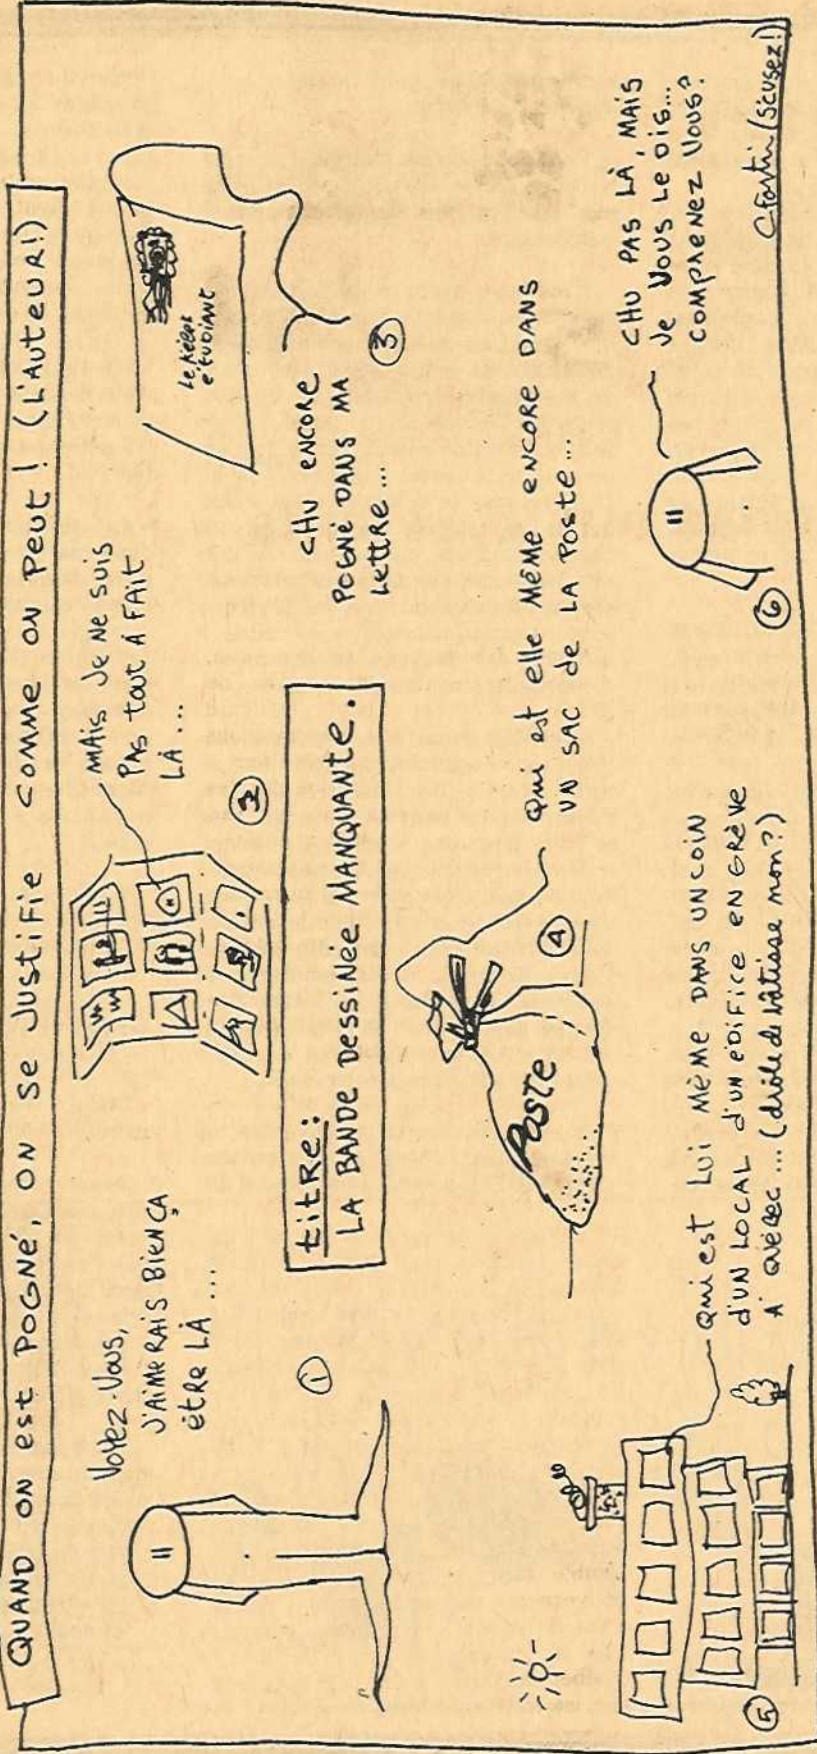 QUAND ON est POGNÉ, ON se JUSTIFIE COMME ON PEUT! (L'AUTEUR!)
VOYEZ-VOUS,
J'AIMERAIS BIEN ÇA
ÊTRE LÀ ....
1
MAIS JE NE SUIS
PAS tout À FAIT
LÀ ...
2
Le
étudiant
CHU ENCORE
POGNÉ DANS MA
Lettre ...
3
titre:
LA BANDE DESSINÉE MANQUANTE.
Poste
Qui est elle MÊME ENCORE DANS
UN SAC de LA Poste ...
4
Qui est LUI MÊME DANS UN COIN
d'UN LOCAL d'UN ÉDIFICE EN GRÈVE
À QUÉBEC ... (drôle de bâtisse non?)
5
CHU PAS LÀ, MAIS
Je VOUS Le DIS...
COMPRENEZ VOUS?
6
C Fortin (scusez!)